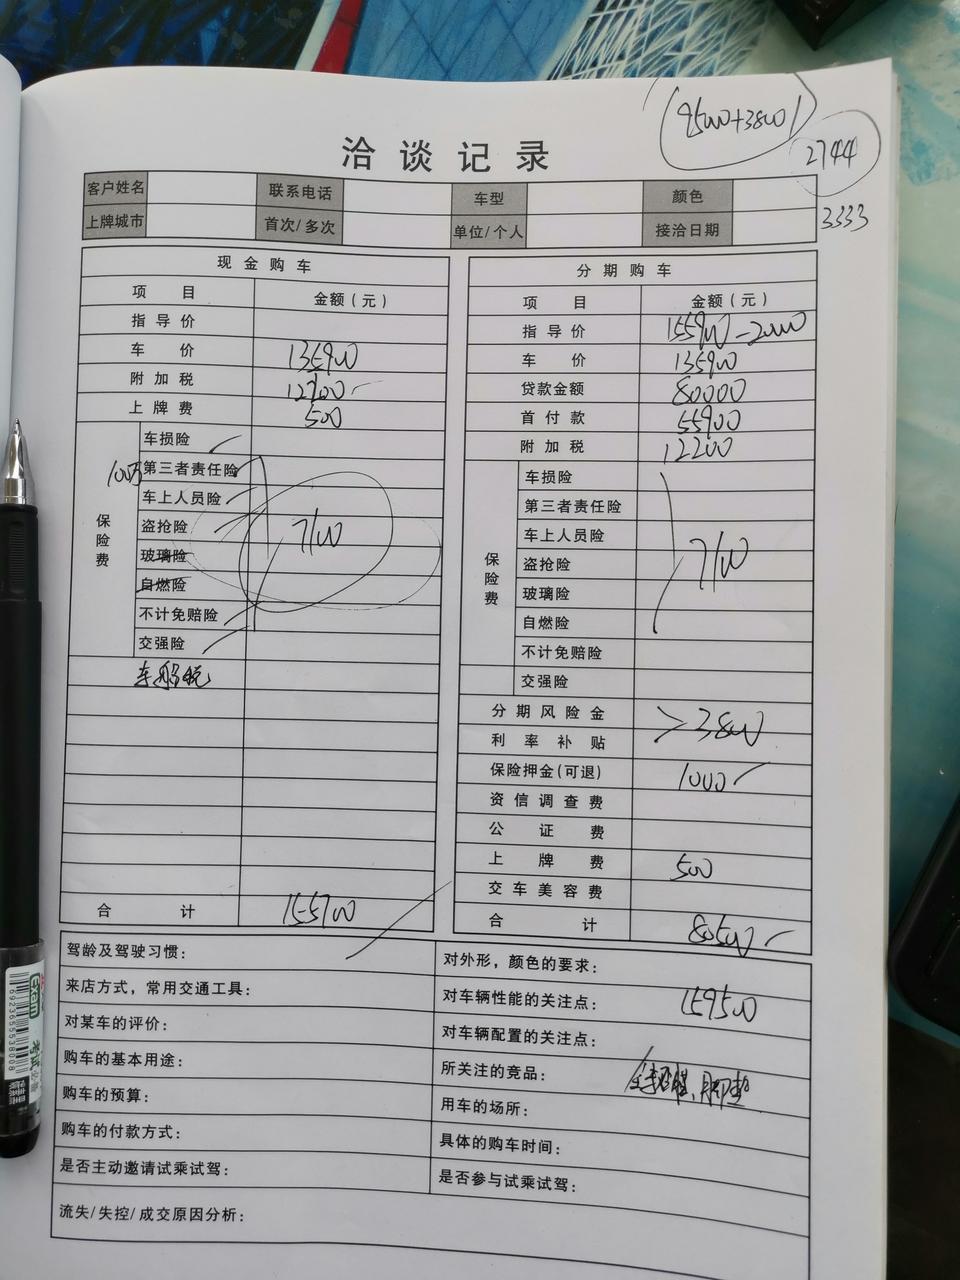 (8500+3800)
2744
洽谈记录
客户姓名 联系电话 车型 颜色
上牌城市 首次/多次 单位/个人 接洽日期
3333
现金购车
项目 金额(元)
指导价
车价 135900
附加税 12200
上牌费 500
保险费
车损险
100万 第三者责任险
车上人员险
盗抢险
7100
玻璃险
自燃险
不计免赔险
交强险
车船税
合计 155700
分期购车
项目 金额(元)
指导价 155900-20000
车价 135900
贷款金额 80000
首付款 55900
附加税 12200
保险费
车损险
第三者责任险
车上人员险
盗抢险
7100
玻璃险
自燃险
不计免赔险
交强险
分期风险金
利率补贴
3800
保险押金(可退) 1000
资信调查费
公证费
上牌费 500
交车美容费
合计 80500
驾龄及驾驶习惯:
来店方式，常用交通工具:
对某车的评价:
购车的基本用途:
购车的预算:
购车的付款方式:
是否主动邀请试乘试驾:
对外形，颜色的要求:
对车辆性能的关注点: 159500
对车辆配置的关注点:
所关注的竞品: 全车贴膜、脚垫
用车的场所:
具体的购车时间:
是否参与试乘试驾:
流失/失控/成交原因分析:
exam 考试必备
6923655538008